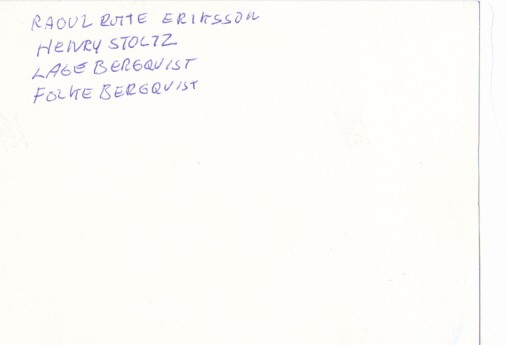 RAOUL ROTTE ERIKSSON
HENRY STOLTZ
LAGE BERGQVIST
FOLKE BERGQVIST